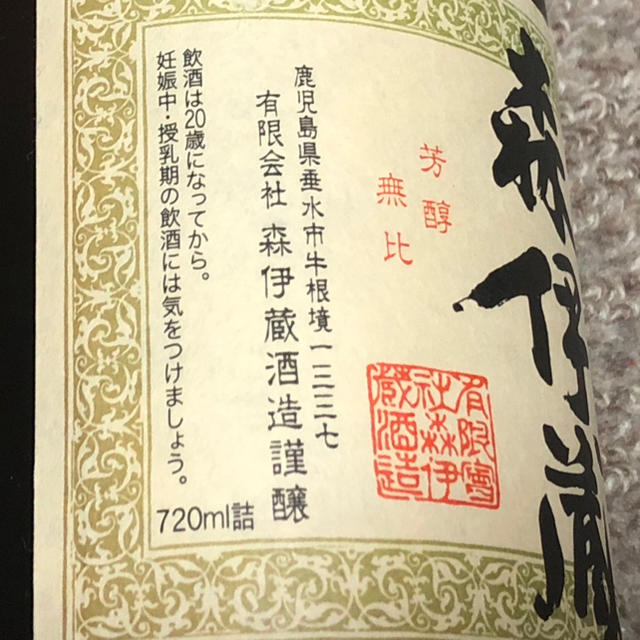 森伊蔵
芳醇
無比
有限會
社森伊
蔵酒造
鹿児島県垂水市牛根境一三三七
有限会社 森伊蔵酒造謹醸
飲酒は20歳になってから。
妊娠中・授乳期の飲酒には気をつけましょう。
720ml詰